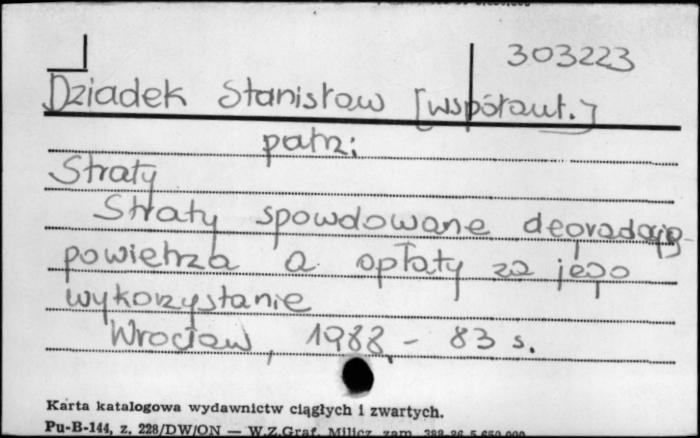 303223
Dziadek Stanisław [współaut.]
patrz:
Straty
Straty spowdowane degradacją
powietrza a opłaty za jego
wykorzystanie
Wrocław, 1988. - 83 s.
Karta katalogowa wydawnictw ciągłych i zwartych.
Pu-B-144, z. 228/DW/ON — W.Z.Graf. Milicz, zam.